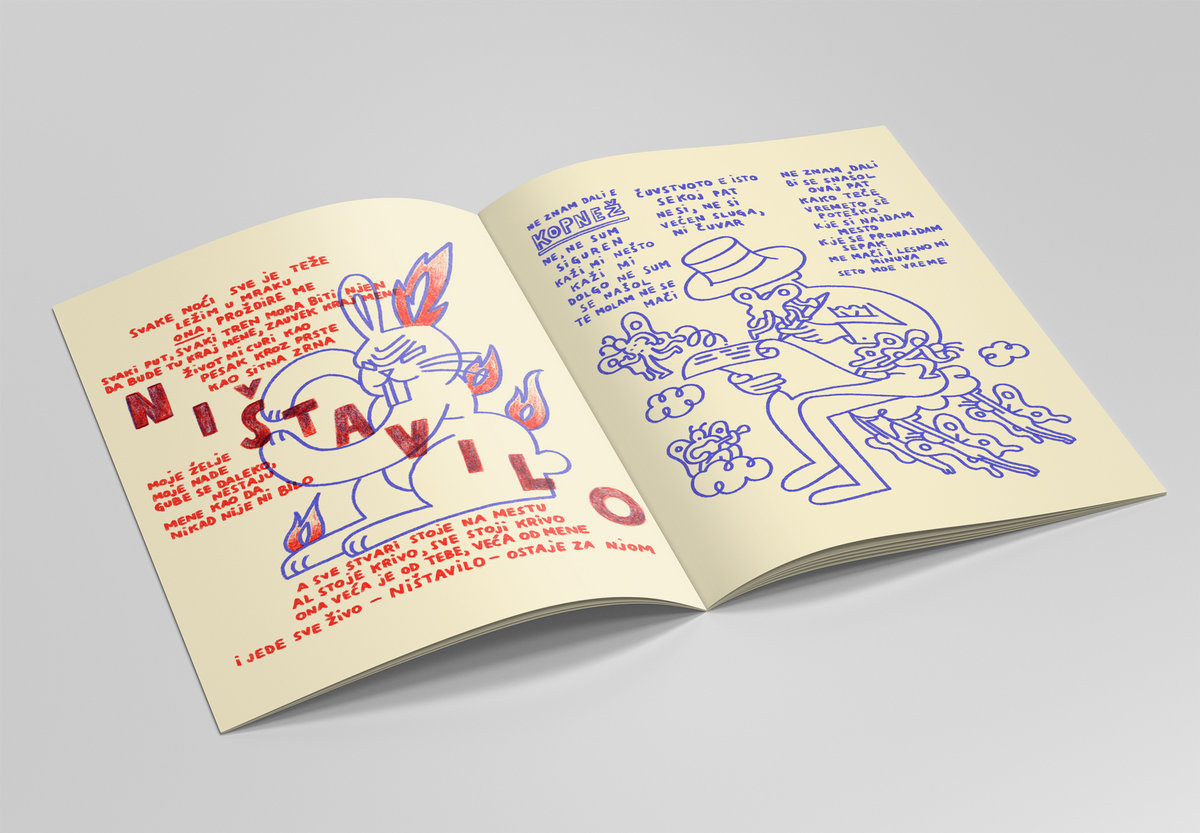 SVAKE NOĆI SVE JE TEŽE
LEŽIM U MRAKU
ONA, PROŽDIRE ME
SVAKI PUT, SVAKI TREN MORA BITI NJEN
DA BUDE TU KRAJ MENE, ZAUVEK KRAJ MENE
ŽIVOT MI CURI KAO
PESAK KROZ PRSTE
KAO SITNA ZRNA
NIŠTAVILO
MOJE ŽELJE
MOJE NADE
GUBE SE DALEKO,
NESTAJU
MENE KAO DA
NIKAD NIJE NI BILO
A SVE STVARI STOJE NA MESTU
AL STOJE KRIVO, SVE STOJI KRIVO
ONA VEĆA JE OD TEBE, VEĆA OD MENE
I JEDE SVE ŽIVO – NIŠTAVILO – OSTAJE ZA NJOM
NE ZNAM DALI E
KOPNEŽ
NE, NE SUM
SIGUREN,
KAŽI MI NEŠTO
KAŽI MI
DOLGO NE SUM
SE NAŠOL
TE MOLAM NE SE
MAČI
ČUVSTVOTO E ISTO
SEKOJ PAT
NE SI, NE SI
VEĆEN SLUGA,
NI ČUVAR
NE ZNAM DALI
BI SE SNAŠOL
OVAJ PAT
KAKO TEČE
VREMETO SÈ
POTEŠKO
KJE SI NAJDAM
MESTO
KJE SE PRONAJDAM
SEPAK
ME MAČI I LESNO MI
MINUVA
SETO MOE VREME